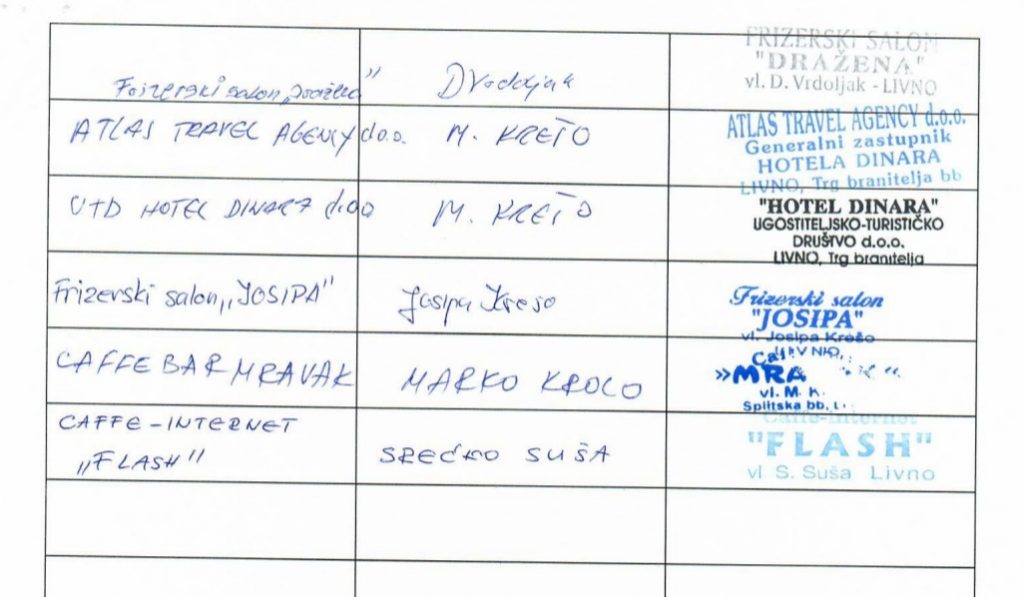 Frizerski salon „Dražena"
D Vrdoljak
FRIZERSKI SALON
"DRAŽENA"
vl. D. Vrdoljak - LIVNO
ATLAS TRAVEL AGENCY d.o.o.
M. KREŠO
ATLAS TRAVEL AGENCY d.o.o.
Generalni zastupnik
HOTELA DINARA
LIVNO, Trg branitelja bb
UTD HOTEL DINARA d.o.o
M. KREŠO
"HOTEL DINARA"
UGOSTITELJSKO-TURISTIČKO
DRUŠTVO d.o.o.
LIVNO, Trg branitelja
Frizerski salon „JOSIPA"
Josipa Krešo
Frizerski salon
"JOSIPA"
vl. Josipa Krešo
LIVNO
CAFFE BAR MRAVAK
MARKO KROLO
»MRA
vl. M. K.
Splitska bb, L
CAFFE-INTERNET
„FLASH"
SREĆKO SUŠA
Caffe-Internet
"FLASH"
vl. S. Suša Livno